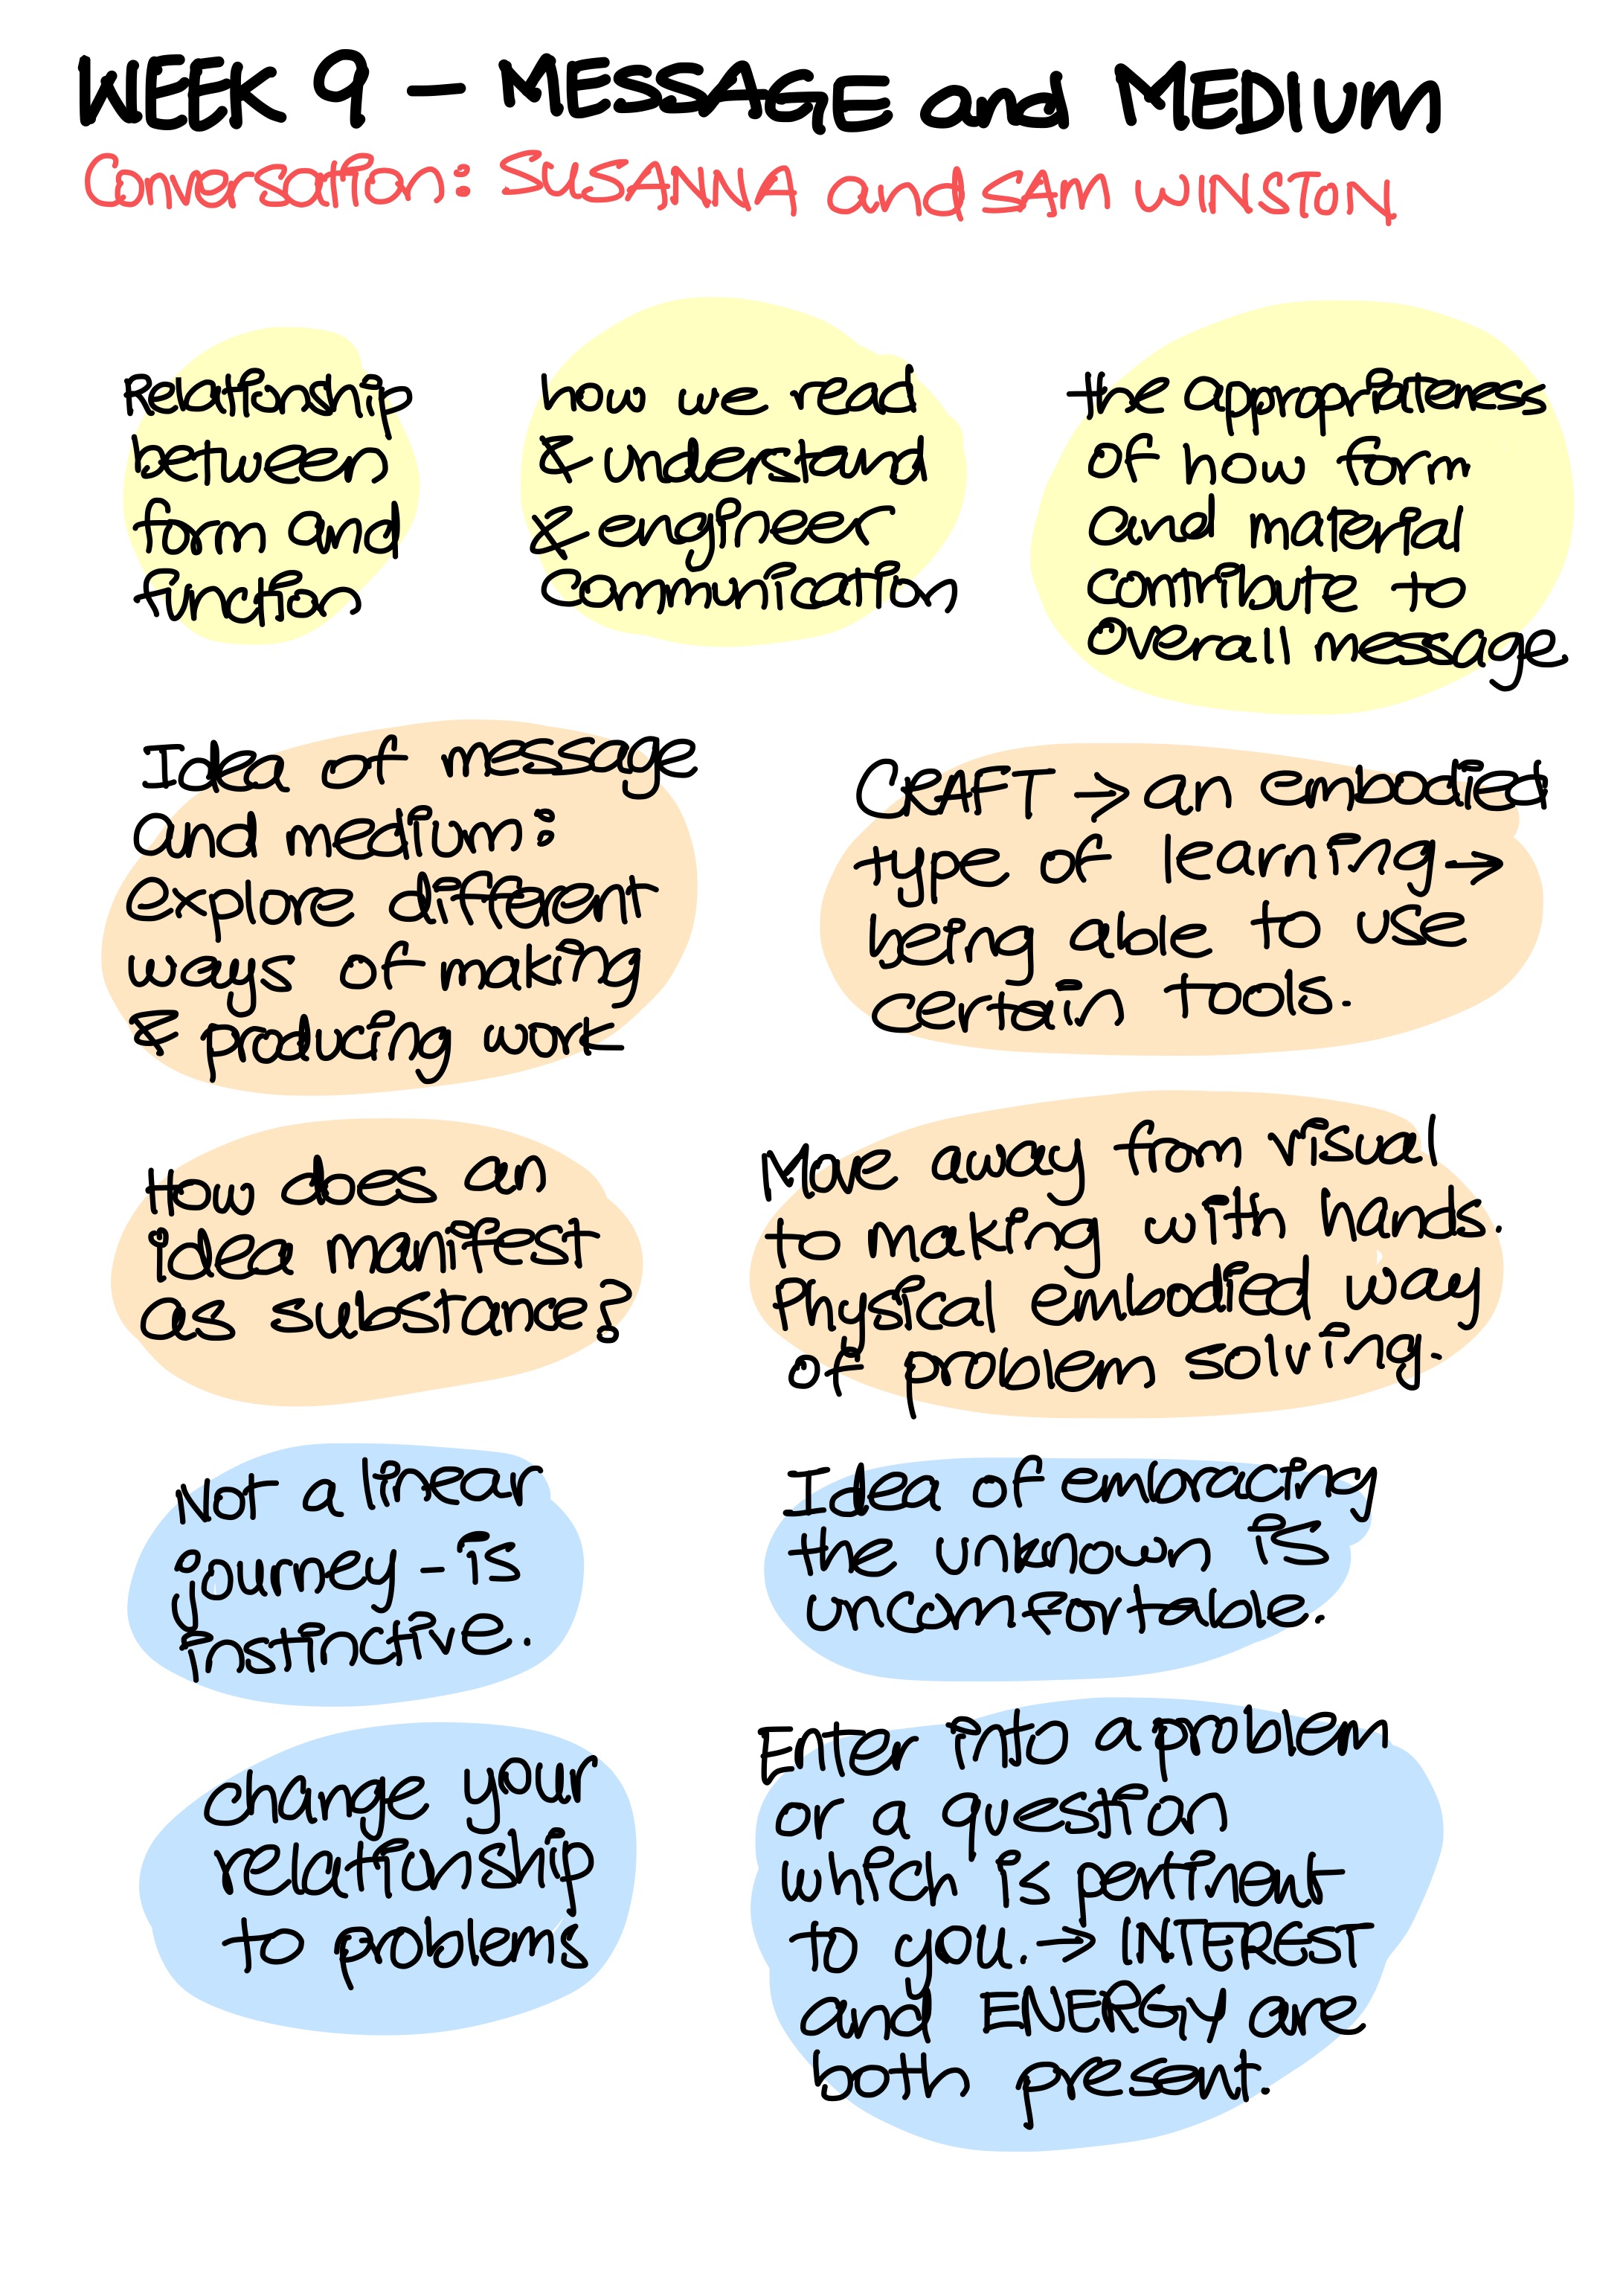 WEEK 9 - MESSAGE and MEDIUM
Conversation: SUSANNA and SAM WINSTON
Relationship
between
form and
function
how we read
& understand
& engineer
communication
the appropriateness
of how form
and material
contribute to
overall message
Idea of message
and medium:
explore different
ways of making
& producing work
CRAFT → an embodied
type of learning →
being able to use
certain tools.
How does an
idea manifest
as substance?
Move away from visual
to making with hands.
Physical embodied way
of problem solving.
Not a linear
journey - is
instinctive.
Idea of embracing
the unknown is
uncomfortable.
change your
relationship
to problems
Enter into a problem
or a question
which is pertinent
to you. → INTEREST
and ENERGY are
both present.